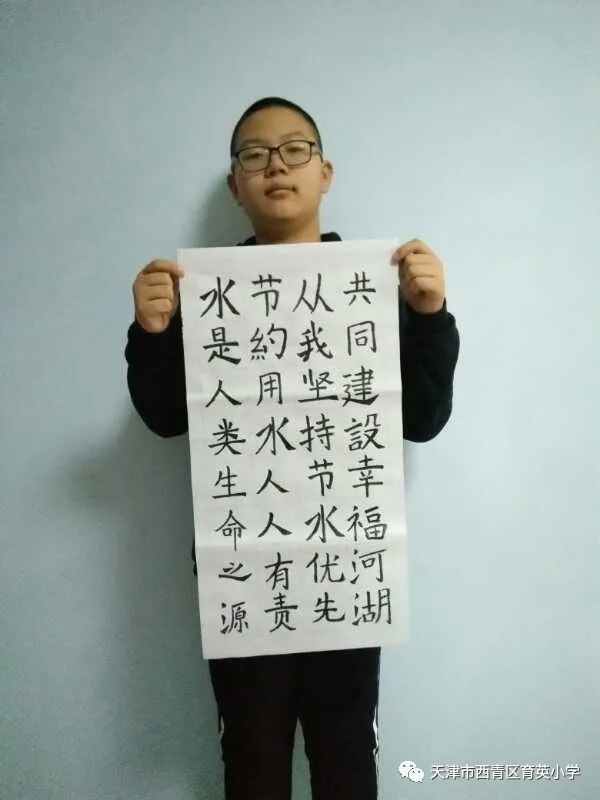 水是人类生命之源
节約用水人人有责
从我坚持节水优先
共同建設幸福河湖
天津市西青区育英小学